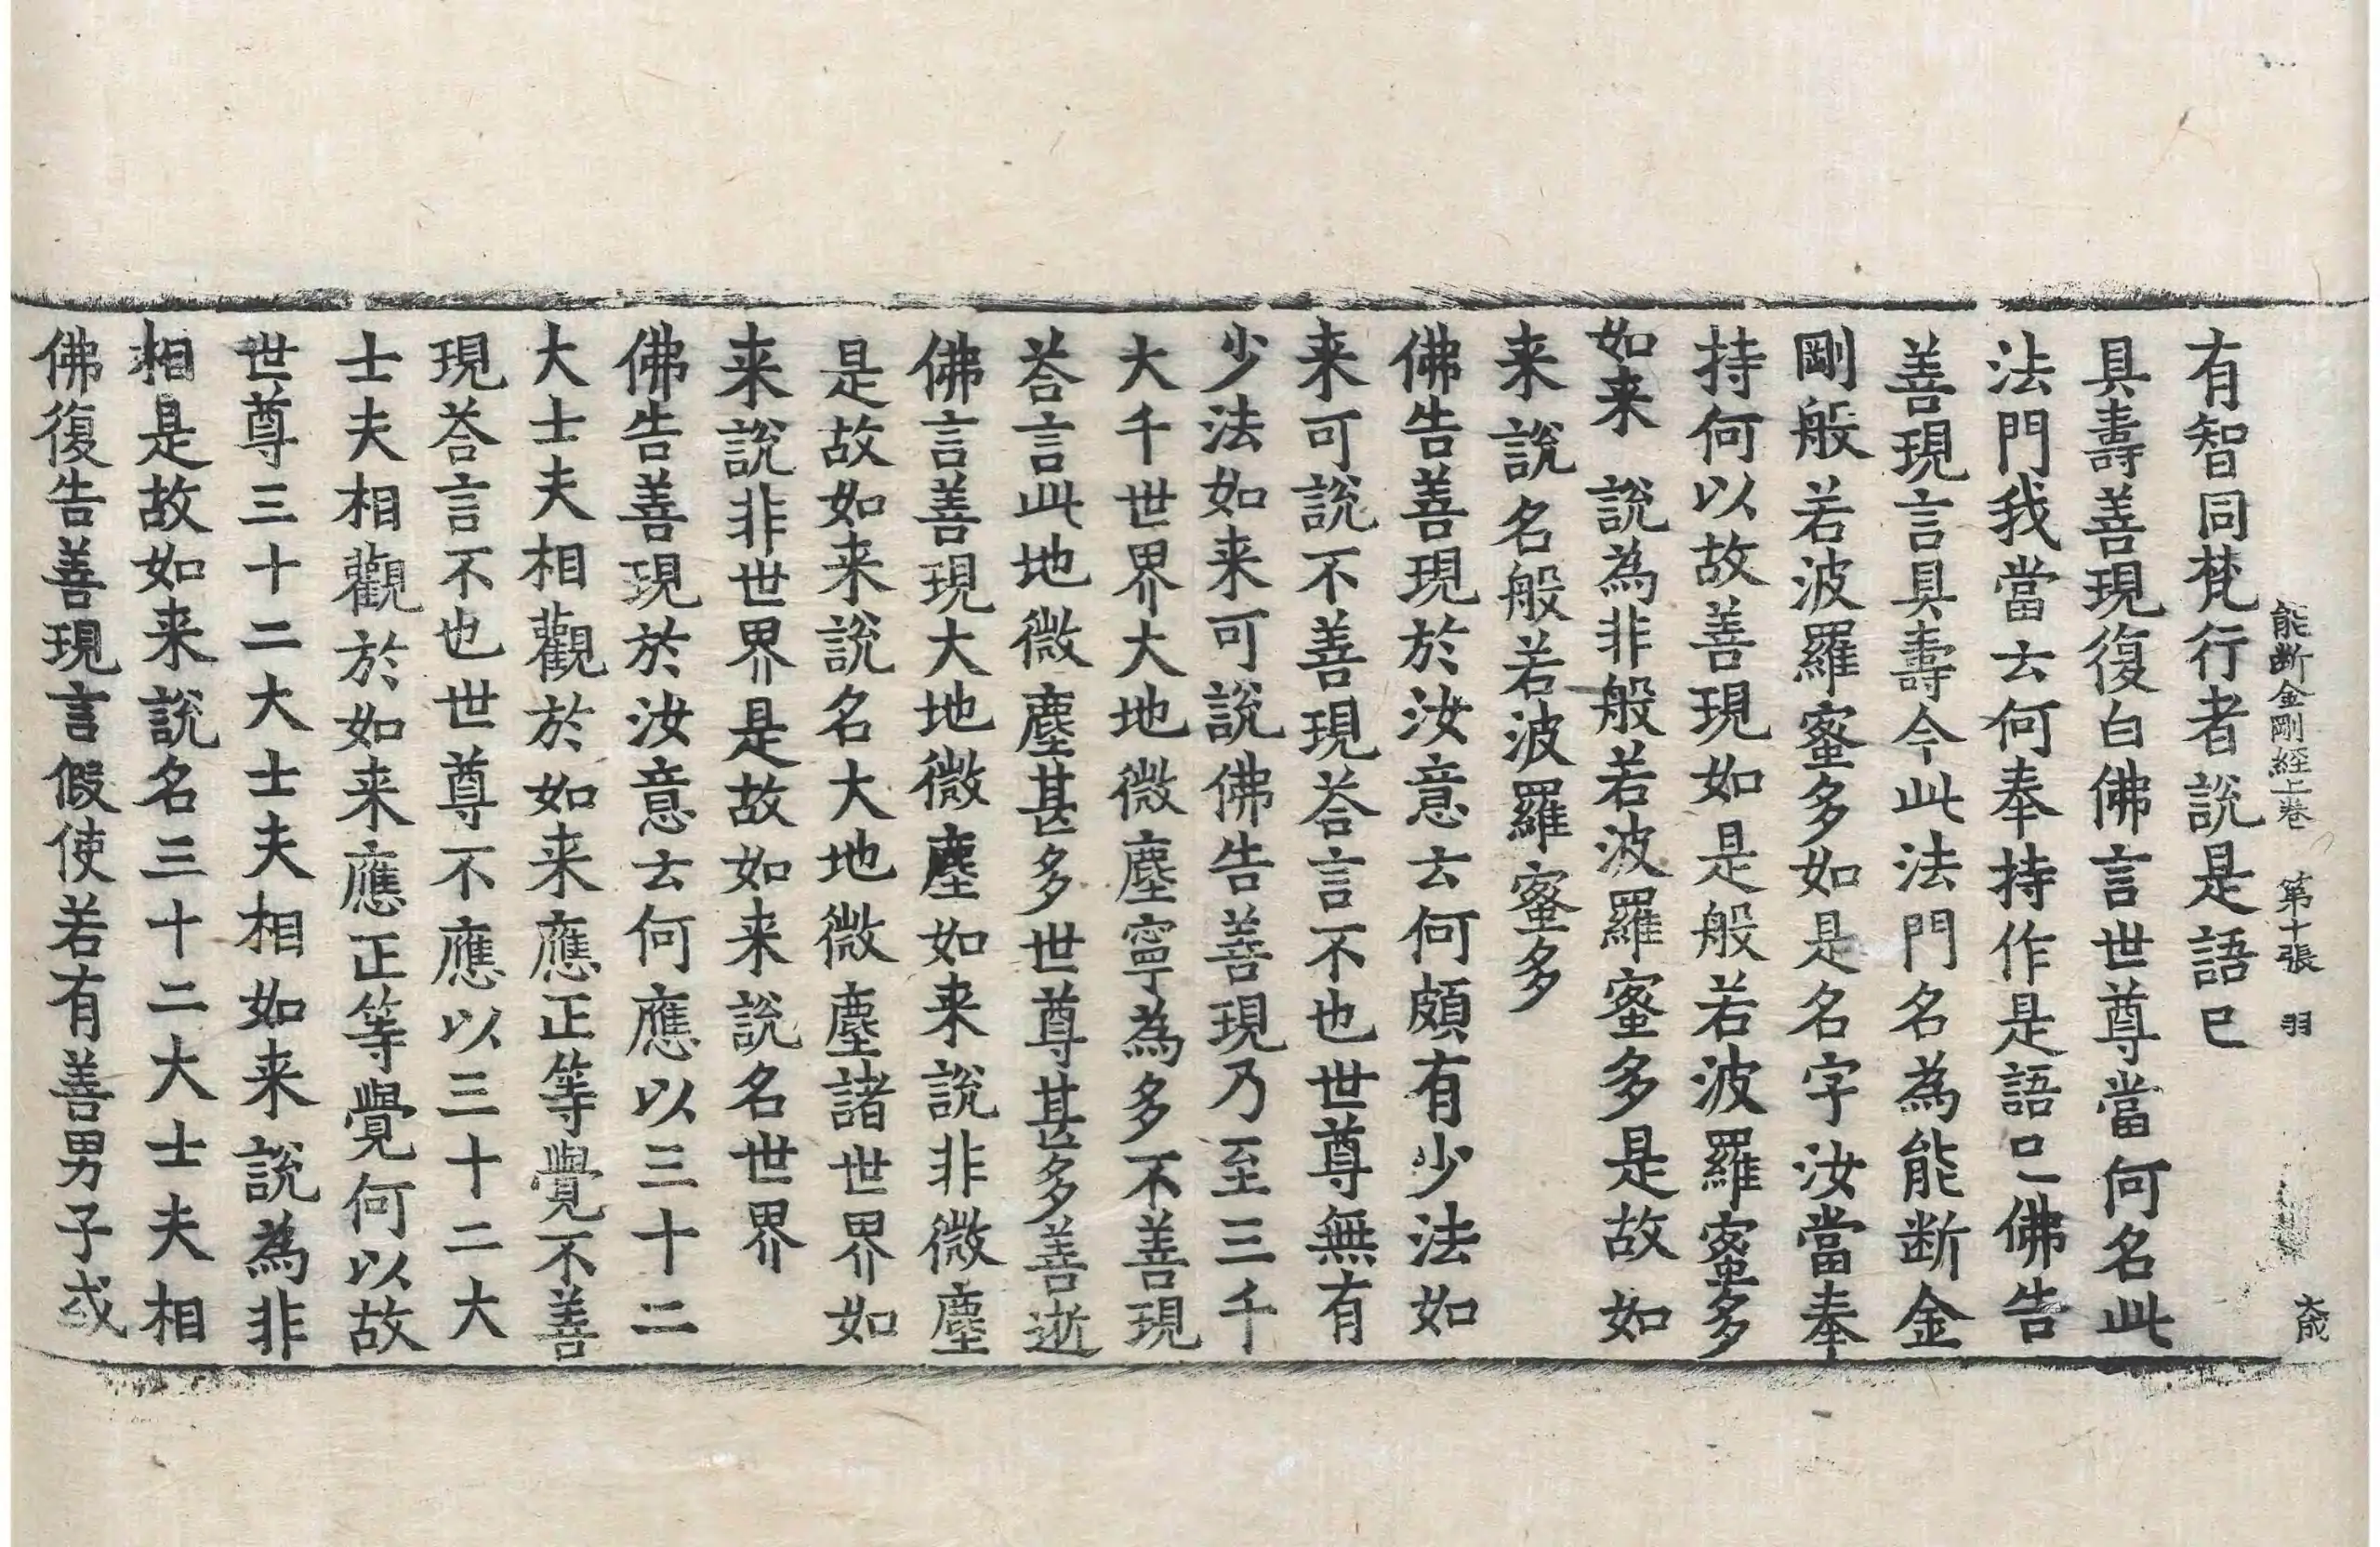 能断金剛経上卷 第十張 羽 大成
有智同梵行者說是語已
具壽善現復白佛言世尊當何名此
法門我當云何奉持作是語已佛告
善現言具壽今此法門名為能断金
剛般若波羅蜜多如是名字汝當奉
持何以故善現如是般若波羅蜜多
如来說為非般若波羅蜜多是故如
来說名般若波羅蜜多
佛告善現於汝意云何頗有少法如
来可說不善現荅言不也世尊無有
少法如来可說佛告善現乃至三千
大千世界大地微塵寧為多不善現
荅言此地微塵甚多世尊甚多善逝
佛言善現大地微塵如来說非微塵
是故如来說名大地微塵諸世界如
来說非世界是故如来說名世界
佛告善現於汝意云何應以三十二
大士夫相觀於如来應正等覺不善
現荅言不也世尊不應以三十二大
士夫相觀於如来應正等覺何以故
世尊三十二大士夫相如来說為非
相是故如来說名三十二大士夫相
佛復告善現言假使若有善男子或